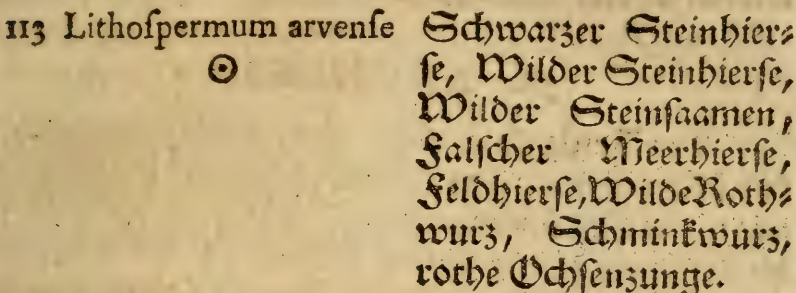 113 Lithoſpermum arvenſe Schwarzer Steinhier⸗
☉ ſe, Wilder Steinhierſe,
Wilder Steinſaamen,
Falſcher Meerhierſe,
Feldhierſe, Wilde Roth⸗
wurz, Schminkwurz,
rothe Ochſenzunge.